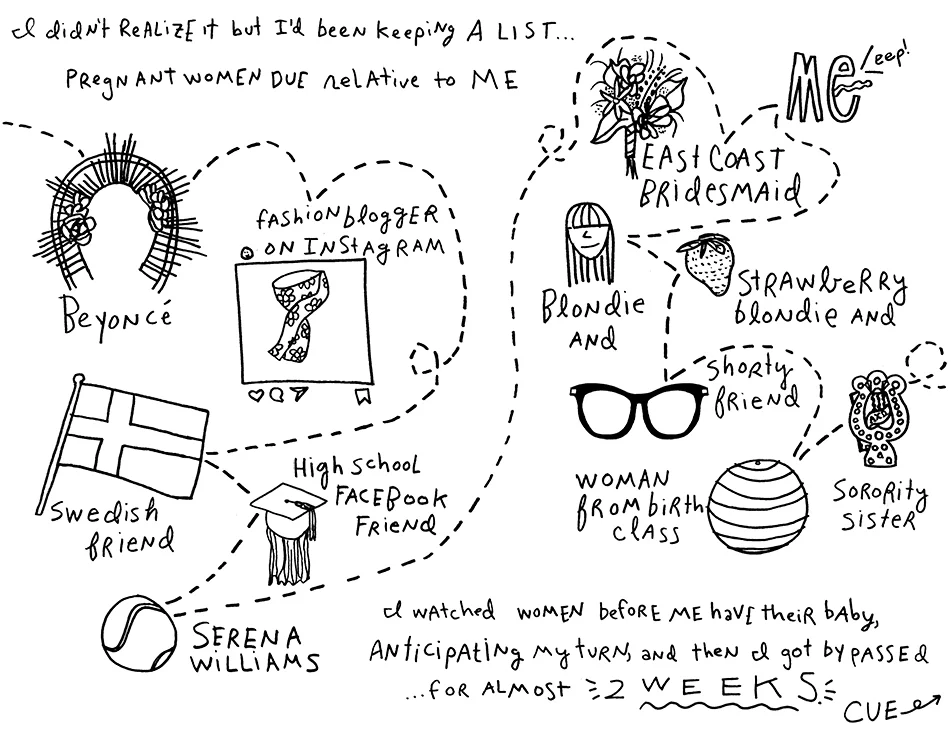 I didn't REALIZE it but I'd been keeping A LIST...
PREGNANT WOMEN DUE relative to ME
Beyoncé
fashion blogger
on Instagram
Swedish
friend
High School
Facebook
Friend
Serena
Williams
East Coast
Bridesmaid
ME
eep!
Blondie
and
Strawberry
blondie and
Shorty
friend
Woman
from birth
class
Sorority
sister
I watched women before me have their baby,
Anticipating my turn, and then I got bypassed
...for almost 2 WEEKS.
CUE